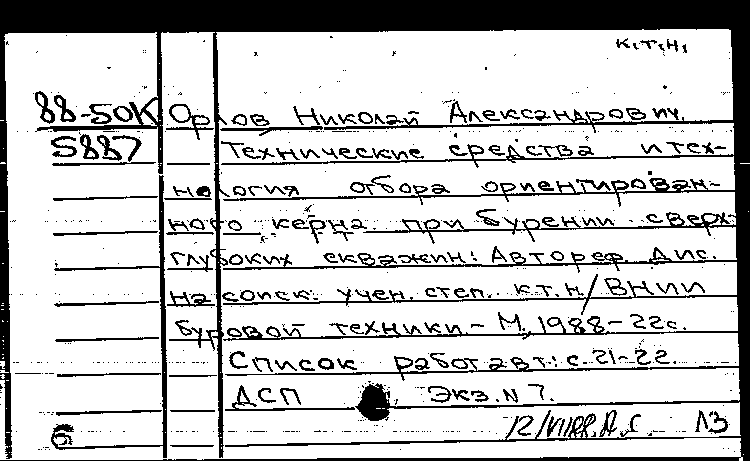 К.Т.Н.
88-50К Орлов Николай Александрович.
5887 Технические средства и тех-
нология отбора ориентирован-
ного керна при бурении сверх-
глубоких скважин: Автореф. дис.
на соиск. учен. степ. к.т.н. / ВНИИ
буровой техники. - М., 1988 - 22с.
Список работ авт.: с. 21-22.
ДСП Экз. N 7.
12/VII88. Л3
6